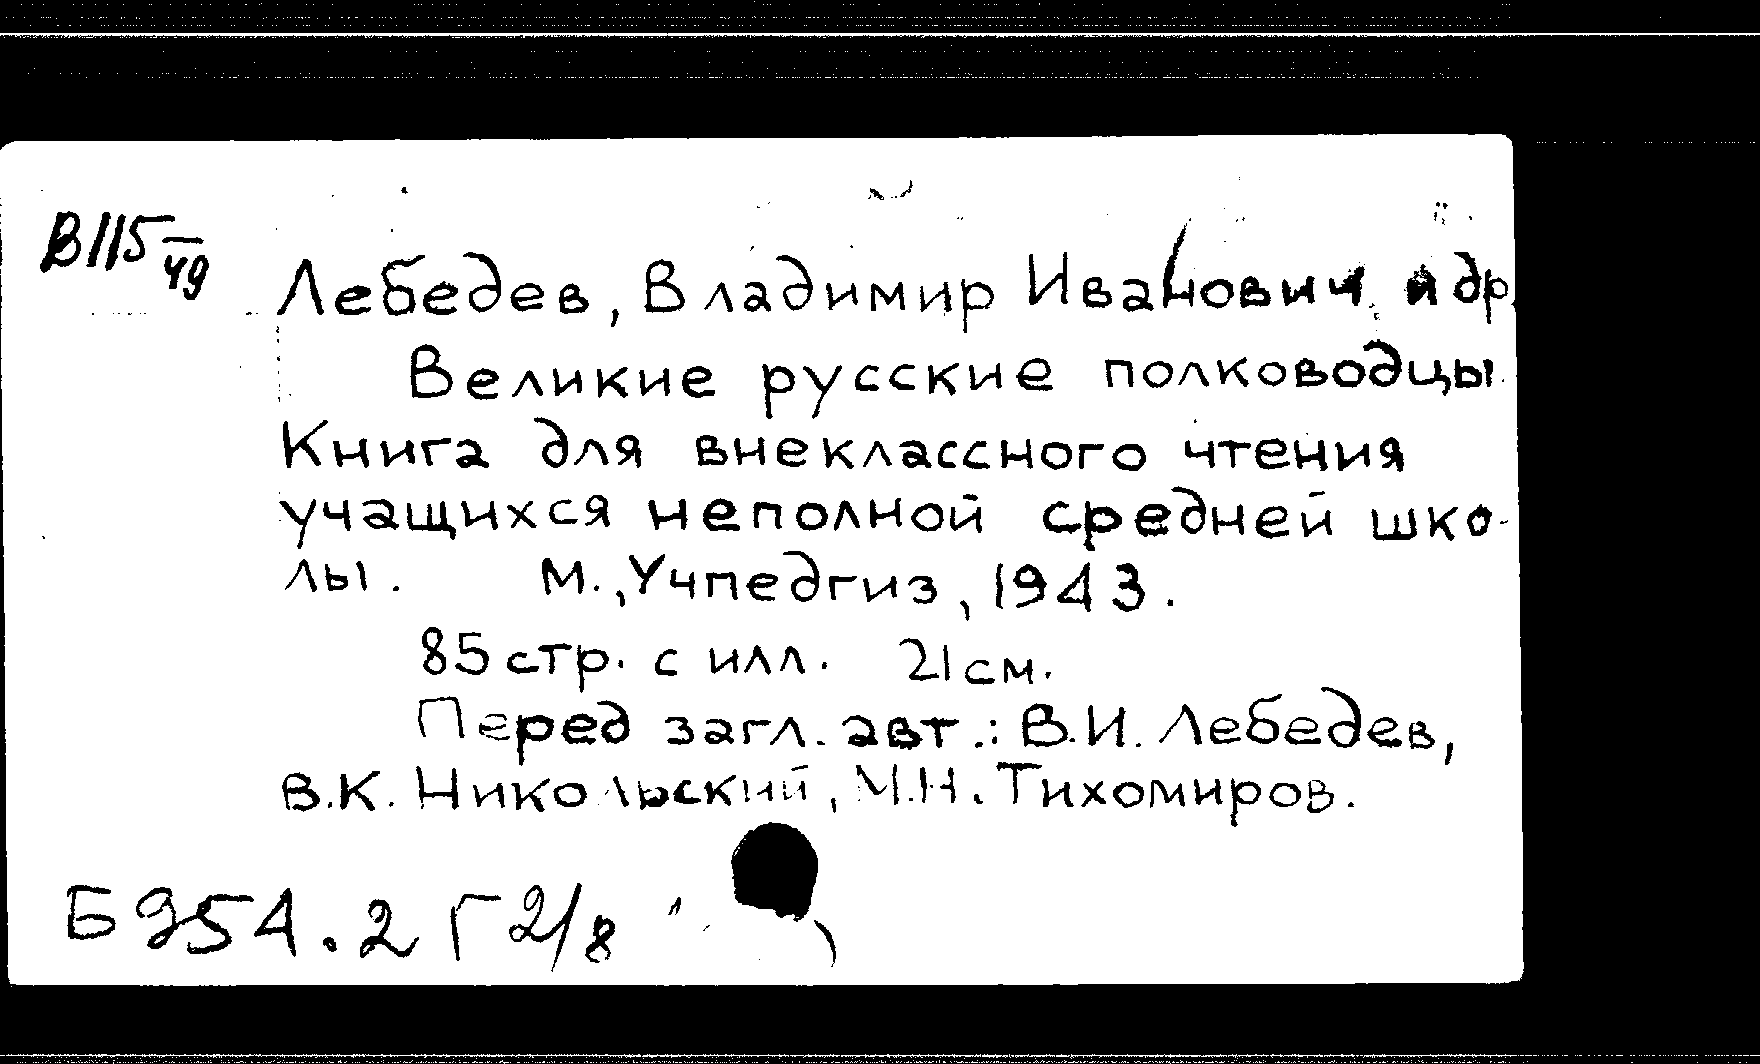 В115/49
Лебедев, Владимир Иванович и др.
Великие русские полководцы.
Книга для внеклассного чтения
учащихся неполной средней шко-
лы. М., Учпедгиз, 1943.
85 стр. с илл. 21 см.
Перед загл. авт.: В.И. Лебедев,
В.К. Никольский, М.Н. Тихомиров.
Б954.2 Г2/8